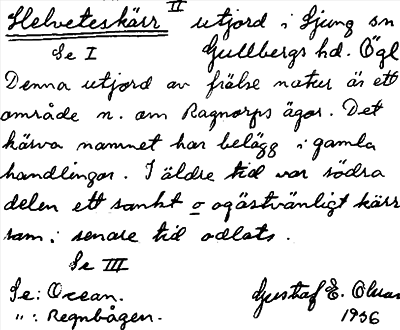 Helveteskärr II utjord i Ljung sn
Se I Gullbergs hd. Ögl
Denna utjord av frälse natur är ett
område n. om Ragnorps ägor. Det
kärva namnet har belägg i gamla
handlingar. I äldre tid var södra
delen ett sankt o ogästvänligt kärr
som i senare tid odlats.
Se III
Se: Ocean. Gustaf E. Olsson
" : Regnbågen. 1936